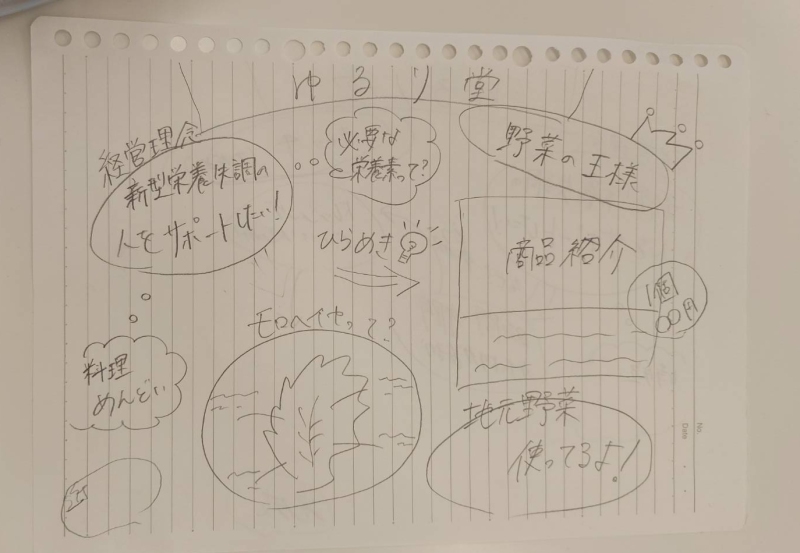 ゆるり堂
経営理念
新型栄養失調の
人をサポートしたい!
必要な
栄養素って?
野菜の王様
ひらめき
商品紹介
1個
〇〇円
モロヘイヤって?
料理
めんどい
地元野菜
使ってるよ!
No.
Date